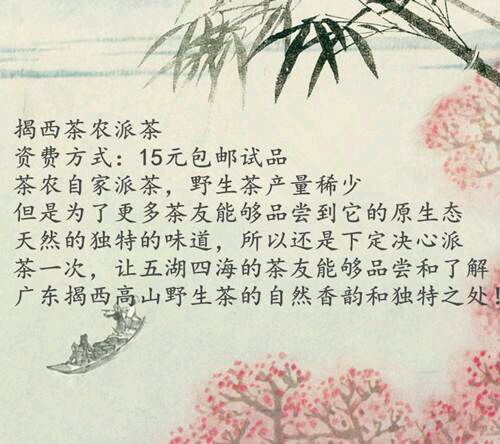 揭西茶农派茶
资费方式：15元包邮试品
茶农自家派茶，野生茶产量稀少
但是为了更多茶友能够品尝到它的原生态
天然的独特的味道，所以还是下定决心派
茶一次，让五湖四海的茶友能够品尝和了解
广东揭西高山野生茶的自然香韵和独特之处！